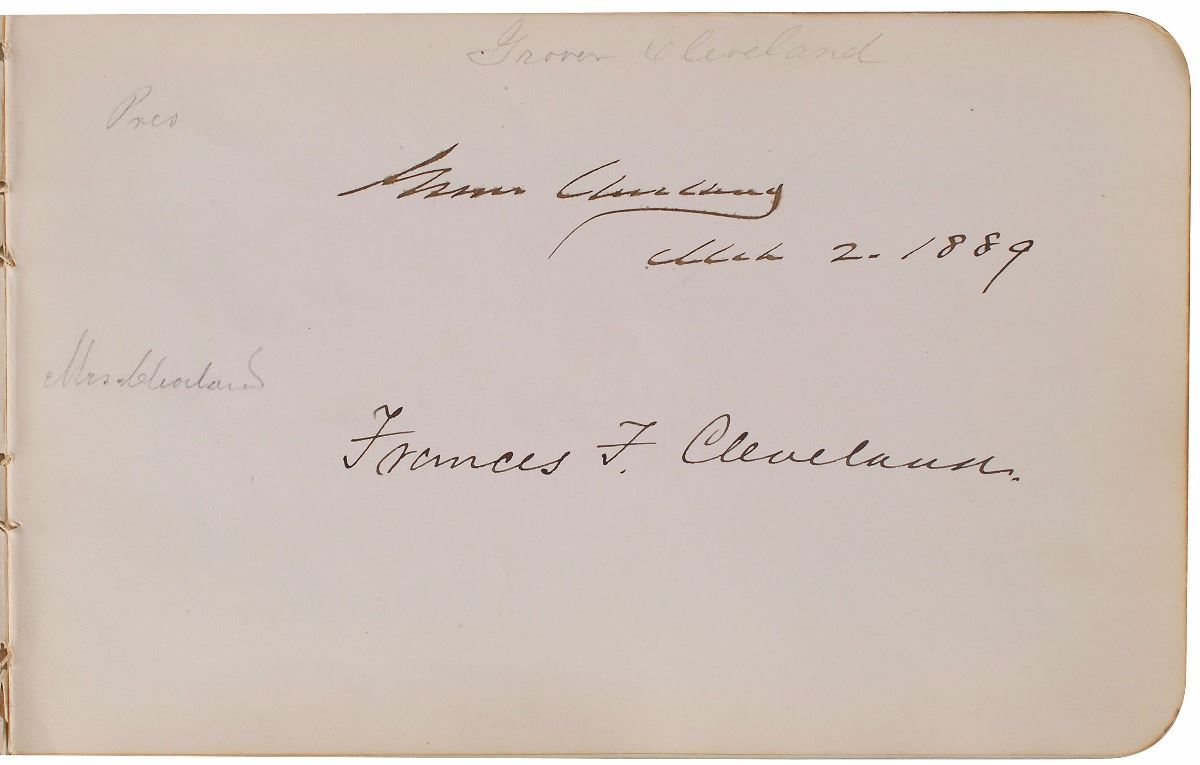 Grover Cleveland
Pres
Grover Cleveland
Mch 2. 1889
Mrs. Cleveland
Frances F. Cleveland.